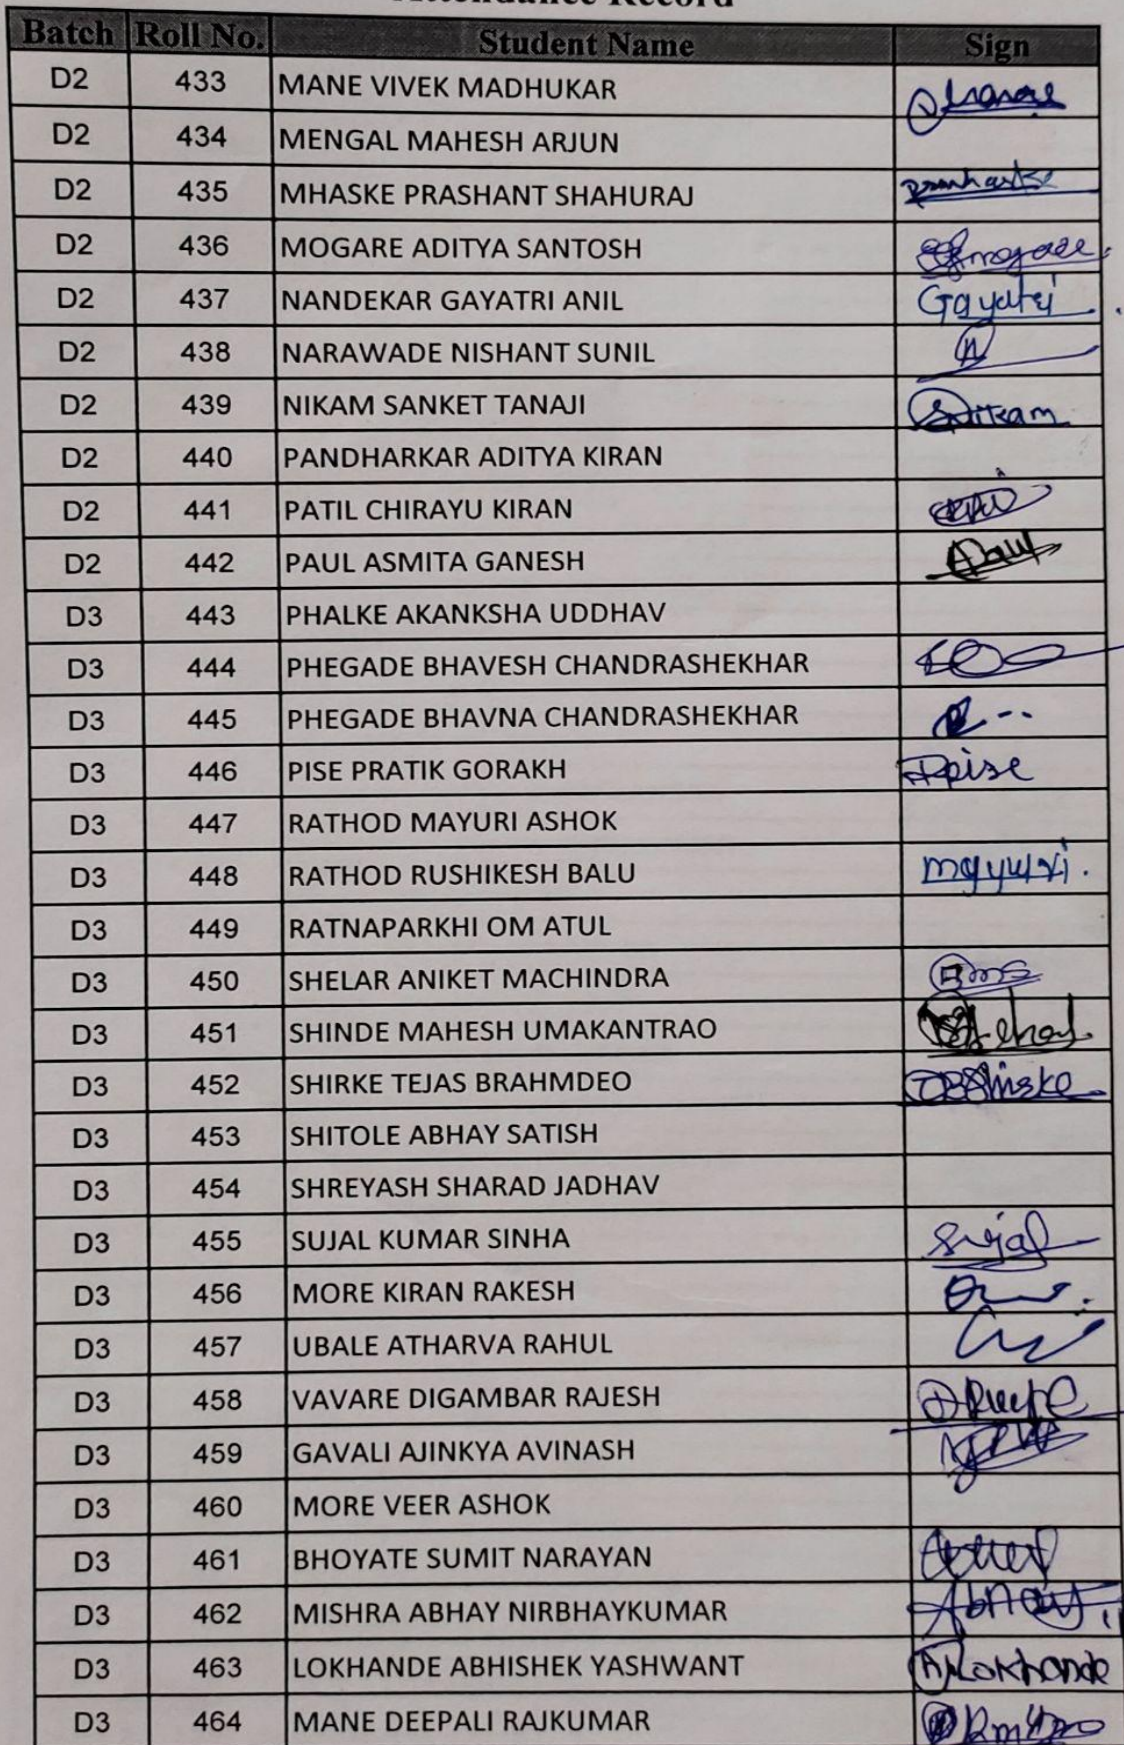 Attendance Record
Batch Roll No. Student Name Sign
D2 433 MANE VIVEK MADHUKAR
D2 434 MENGAL MAHESH ARJUN
D2 435 MHASKE PRASHANT SHAHURAJ
D2 436 MOGARE ADITYA SANTOSH
D2 437 NANDEKAR GAYATRI ANIL Gayatri
D2 438 NARAWADE NISHANT SUNIL
D2 439 NIKAM SANKET TANAJI
D2 440 PANDHARKAR ADITYA KIRAN
D2 441 PATIL CHIRAYU KIRAN
D2 442 PAUL ASMITA GANESH
D3 443 PHALKE AKANKSHA UDDHAV
D3 444 PHEGADE BHAVESH CHANDRASHEKHAR
D3 445 PHEGADE BHAVNA CHANDRASHEKHAR
D3 446 PISE PRATIK GORAKH
D3 447 RATHOD MAYURI ASHOK
D3 448 RATHOD RUSHIKESH BALU mayuri.
D3 449 RATNAPARKHI OM ATUL
D3 450 SHELAR ANIKET MACHINDRA
D3 451 SHINDE MAHESH UMAKANTRAO
D3 452 SHIRKE TEJAS BRAHMDEO
D3 453 SHITOLE ABHAY SATISH
D3 454 SHREYASH SHARAD JADHAV
D3 455 SUJAL KUMAR SINHA Sujal
D3 456 MORE KIRAN RAKESH
D3 457 UBALE ATHARVA RAHUL
D3 458 VAVARE DIGAMBAR RAJESH
D3 459 GAVALI AJINKYA AVINASH
D3 460 MORE VEER ASHOK
D3 461 BHOYATE SUMIT NARAYAN
D3 462 MISHRA ABHAY NIRBHAYKUMAR Abhay
D3 463 LOKHANDE ABHISHEK YASHWANT ALokhande
D3 464 MANE DEEPALI RAJKUMAR